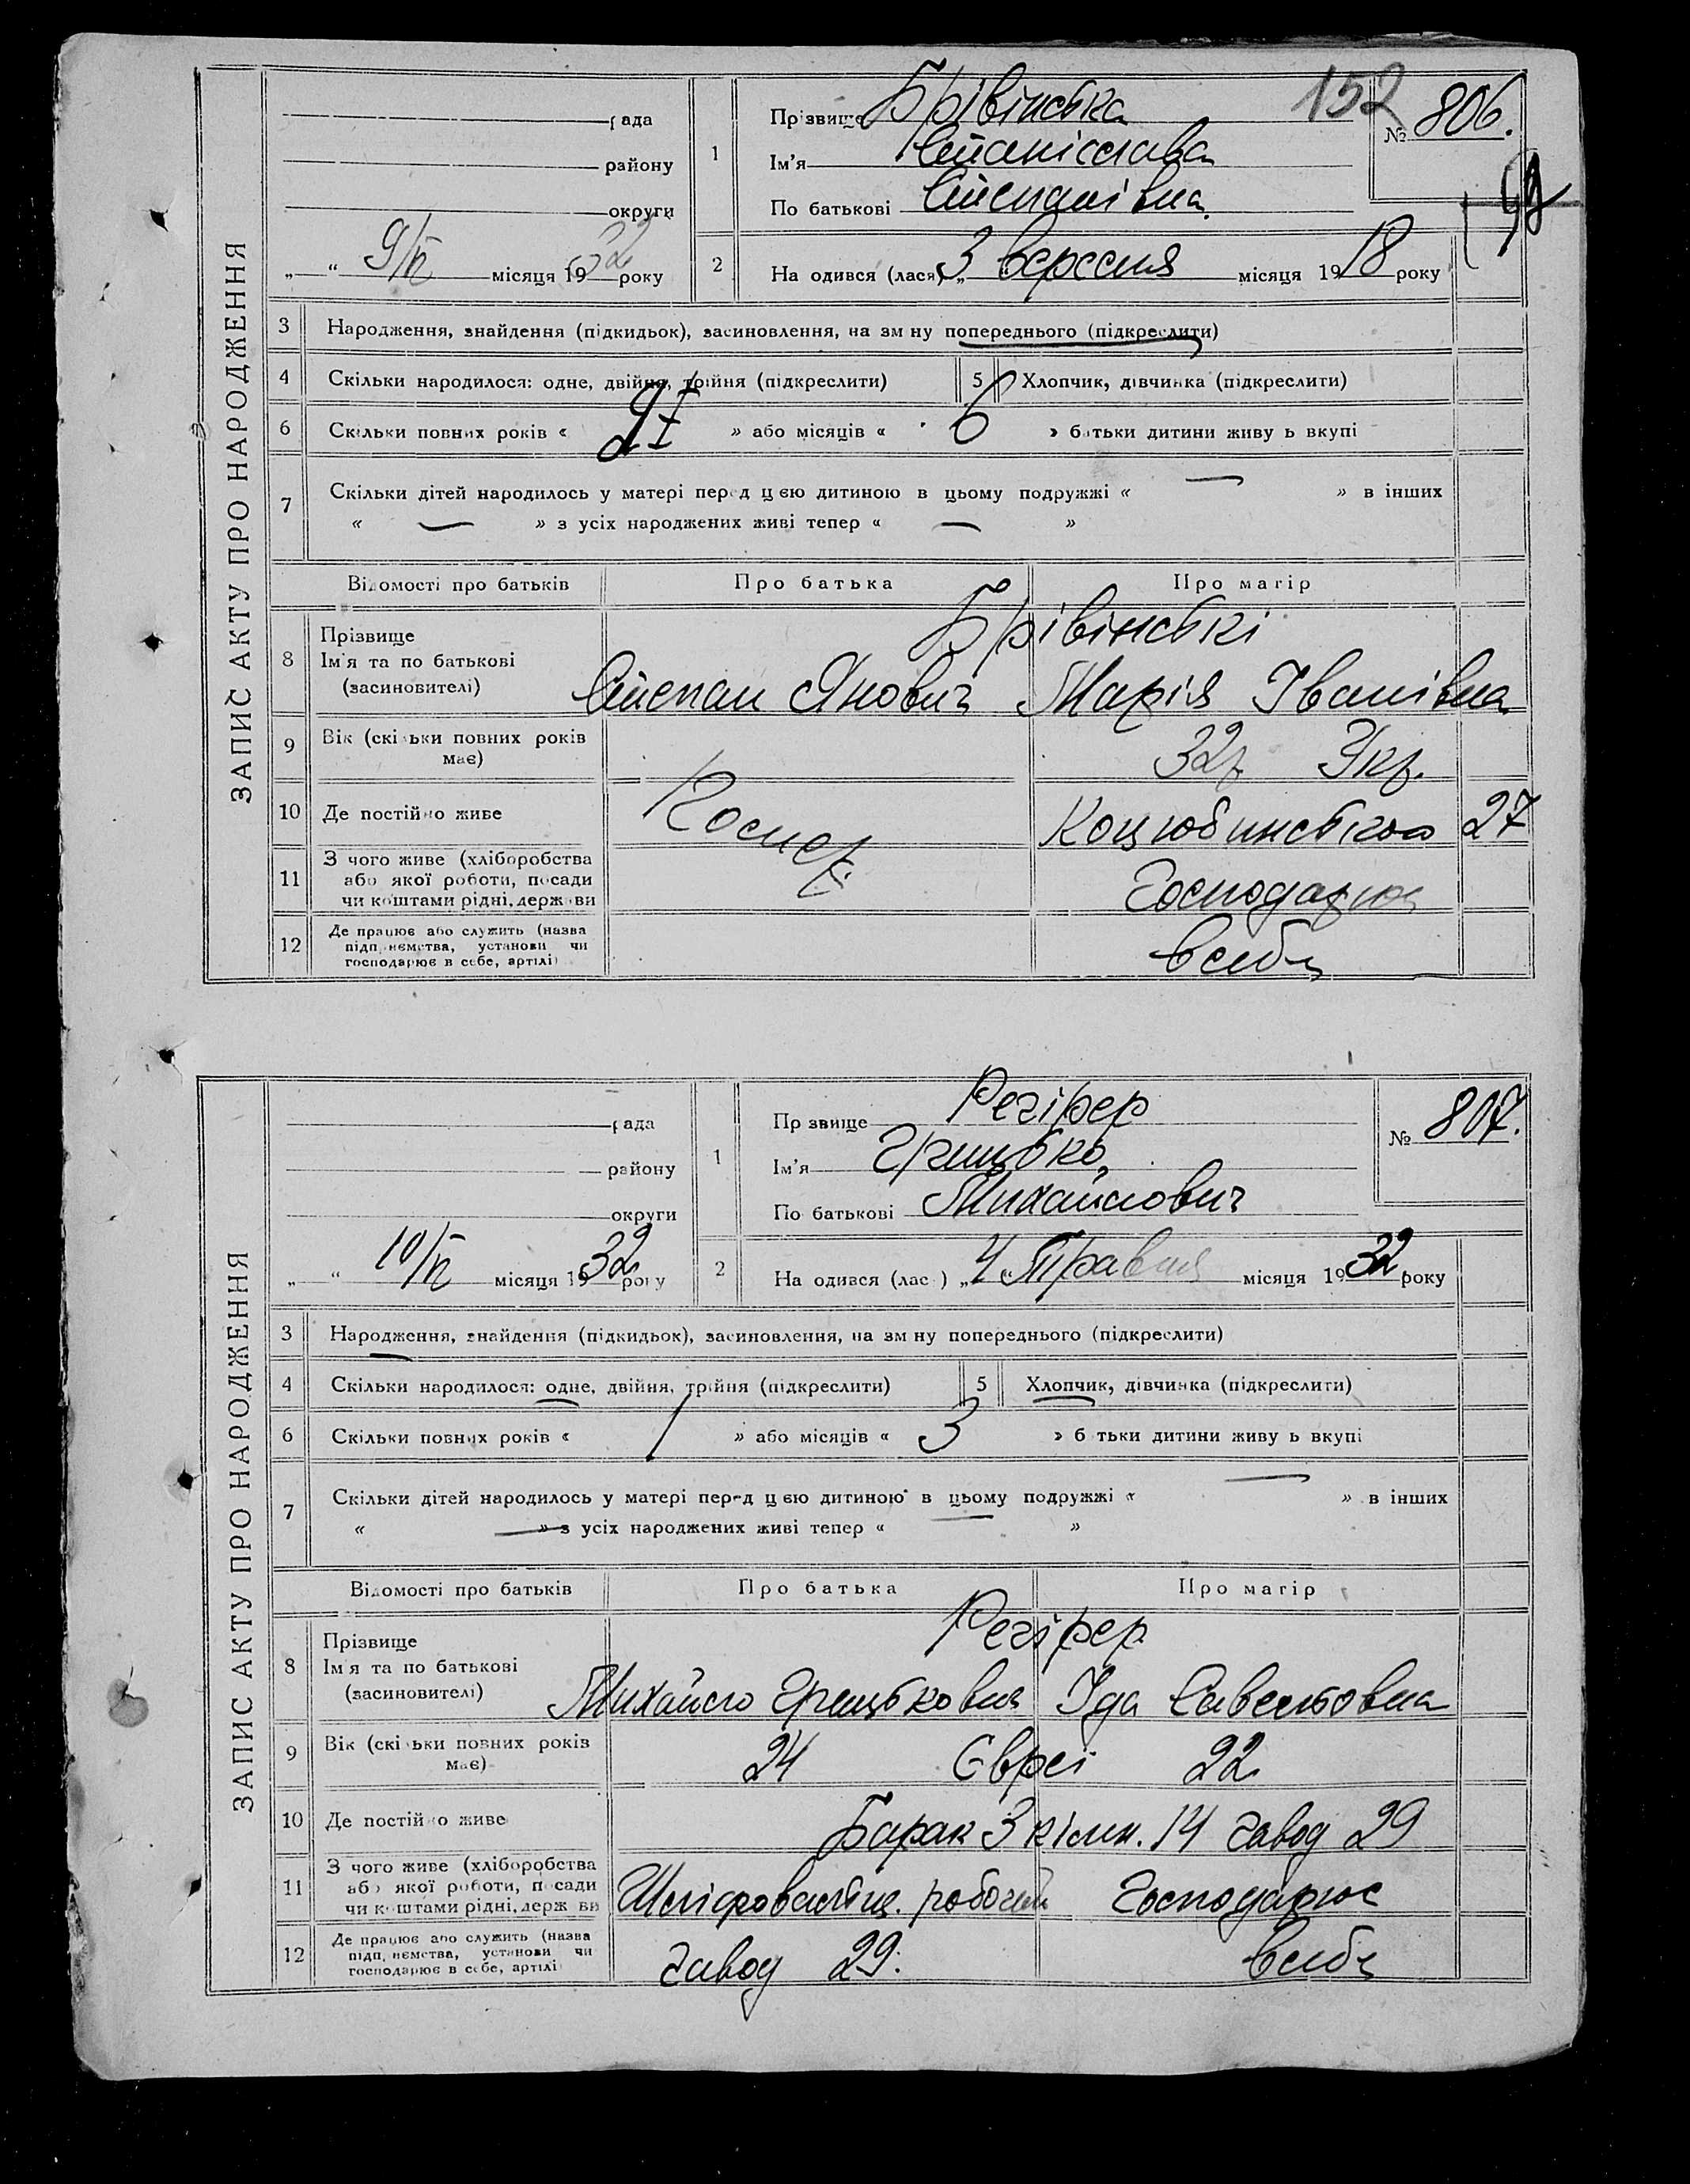 152
ЗАПИС АКТУ ПРО НАРОДЖЕННЯ
рада
району
округи
„ “ 9/VI місяця 1932 року
1
Прізвище Брівінська
Ім'я Станіслава
По батькові Степанівна
№ 806.
2
На одився (лася) „3 вересня місяця 1918 року
3 Народження, знайдення (підкидьок), засиновлення, на зм ну попереднього (підкреслити)
4 Скільки народилося: одне, двійня, трійня (підкреслити)
5 Хлопчик, дівчинка (підкреслити)
6 Скільки повних років « » або місяців « 6 » батьки дитини живу ь вкупі
7 Скільки дітей народилось у матері перед цею дитиною в цьому подружжі « — » в інших
« — » з усіх народжених живі тепер « — »
Відомості про батьків Про батька Про матір
8 Прізвище
Ім'я та по батькові
(засиновителі)
Брівінські
Степан Янович Марія Іванівна
9 Вік (скільки повних років
має)
32р. Укр.
10 Де постійно живе
Коцюбинського 27
11 З чого живе (хліборобства
або якої роботи, посади
чи коштами рідні, держ ви
Господарює
12 Де працює або служить (назва
підп иємства, установи чи
господарює в себе, артілі)
в себе
ЗАПИС АКТУ ПРО НАРОДЖЕННЯ
рада
району
округи
„ “ 10/VI місяця 1932 року
1
Пр звище Регірер
Ім'я Грицько
По батькові Михайлович
№ 807.
2
На одився (лас ) „4 Травня місяця 1932 року
3 Народження, знайдення (підкидьок), засиновлення, на зм ну попереднього (підкреслити)
4 Скільки народилося: одне, двійня, трійня (підкреслити)
5 Хлопчик, дівчинка (підкреслити)
6 Скільки повних років « 1 » або місяців « 3 » б тьки дитини живу ь вкупі
7 Скільки дітей народилось у матері перед цею дитиною в цьому подружжі « — » в інших
« — » з усіх народжених живі тепер « »
Відомості про батьків Про батька Про матір
8 Прізвище
Ім'я та по батькові
(засиновителі)
Регірер
Михайло Грицькович Іда Савельовна
9 Вік (скільки повних років
має)
24 Євреї 22
10 Де постійно живе
Барак 3 кімн. 14 завод 29
11 З чого живе (хліборобства
або якої роботи, посади
чи коштами рідні, держ ви
Шліфовальщ. робочий Господарює
12 Де працює або служить (назва
підп иємства, установи чи
господарює в себе, артілі
завод 29. в себе